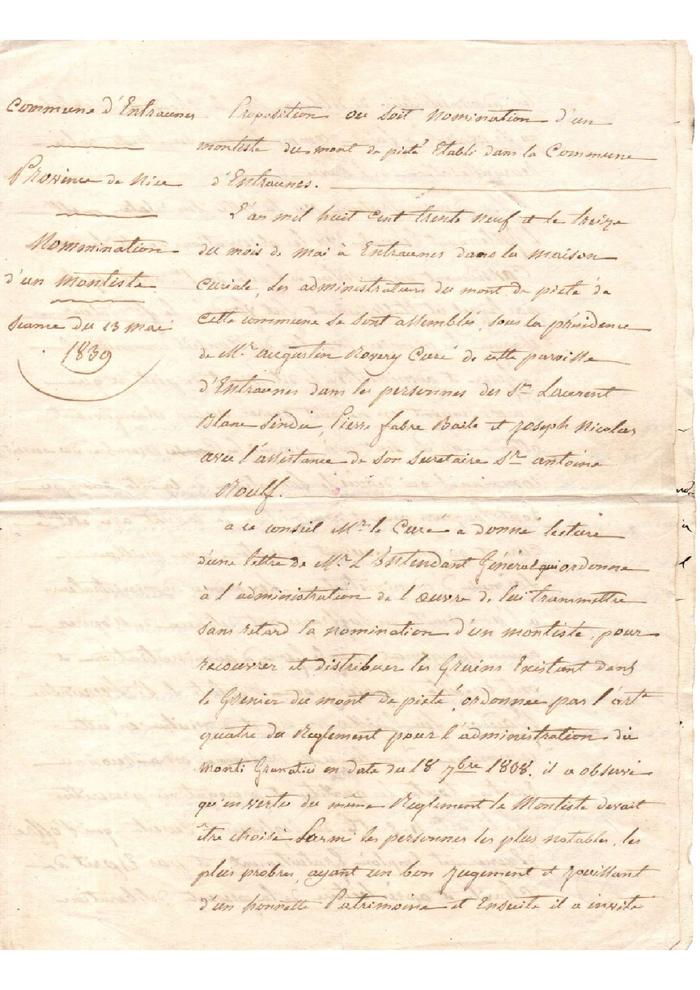 Commune d'Entraunes
Province de Nice
Nommination
d'un montiste
seance du 13 mai
1839
Proposition ou soit nomination d'un
montiste du mont de pieté Etabli dans la Commune
d'Entraunes.
L'an mil huit cent trente neuf et le treize
du mois de mai à Entraunes dans la maison
curiale, Les administrateurs du mont de pieté de
cette commune se sont assemblés, sous la présidence
de Mr. augustin Rovery Curé de cette paroisse
d'Entraunes dans les personnes des Srs Laurent
Blanc Sindic, Pierre fabre Baile et Joseph Nicolas
avec l'assistance de son secretaire Sr antoine
Rouff.
a ce conseil Mr. le Curé a donné lecture
d'une lettre de Mr. L'Intendant Général qui ordonne
à l'administration de l'œuvre de lui transmettre
sans retard la nomination d'un montiste, pour
recouvrer et distribuer les Grains Existant dans
le Grenier du mont de pieté, ordonnée par l'arte
quatre du Reglement pour l'administration des
monti Granatici en date du 18 7bre 1808. il a observé
qu'en vertu du même Reglement le Montiste devait
être choisi Parmi les personnes les plus notables, les
plus probres, ayant un bon jugement et jouissant
d'un honnette Patrimoine et Ensuite il a invité